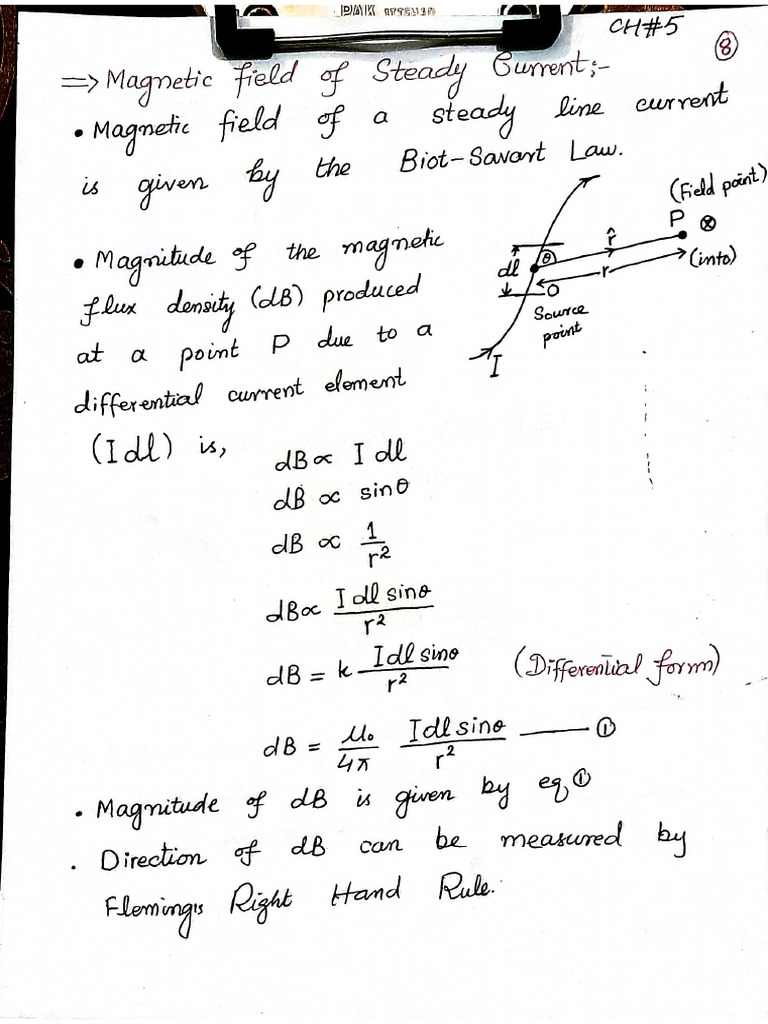 CH#5
8
=> Magnetic field of Steady Current:-
• Magnetic field of a steady line current
is given by the Biot-Savart Law.
(Field point)
P ⊗
r̂
θ
dl
r
(into)
O
Source
point
I
• Magnitude of the magnetic
flux density (dB) produced
at a point P due to a
differential current element
(Idl) is,
dB ∝ I dl
dB ∝ sinθ
dB ∝ 1/r²
dB ∝ Idl sinθ/r²
dB = k Idl sinθ/r² (Differential form)
dB = μ₀/4π Idl sinθ/r² —— ①
• Magnitude of dB is given by eq ①
• Direction of dB can be measured by
Fleming's Right Hand Rule.